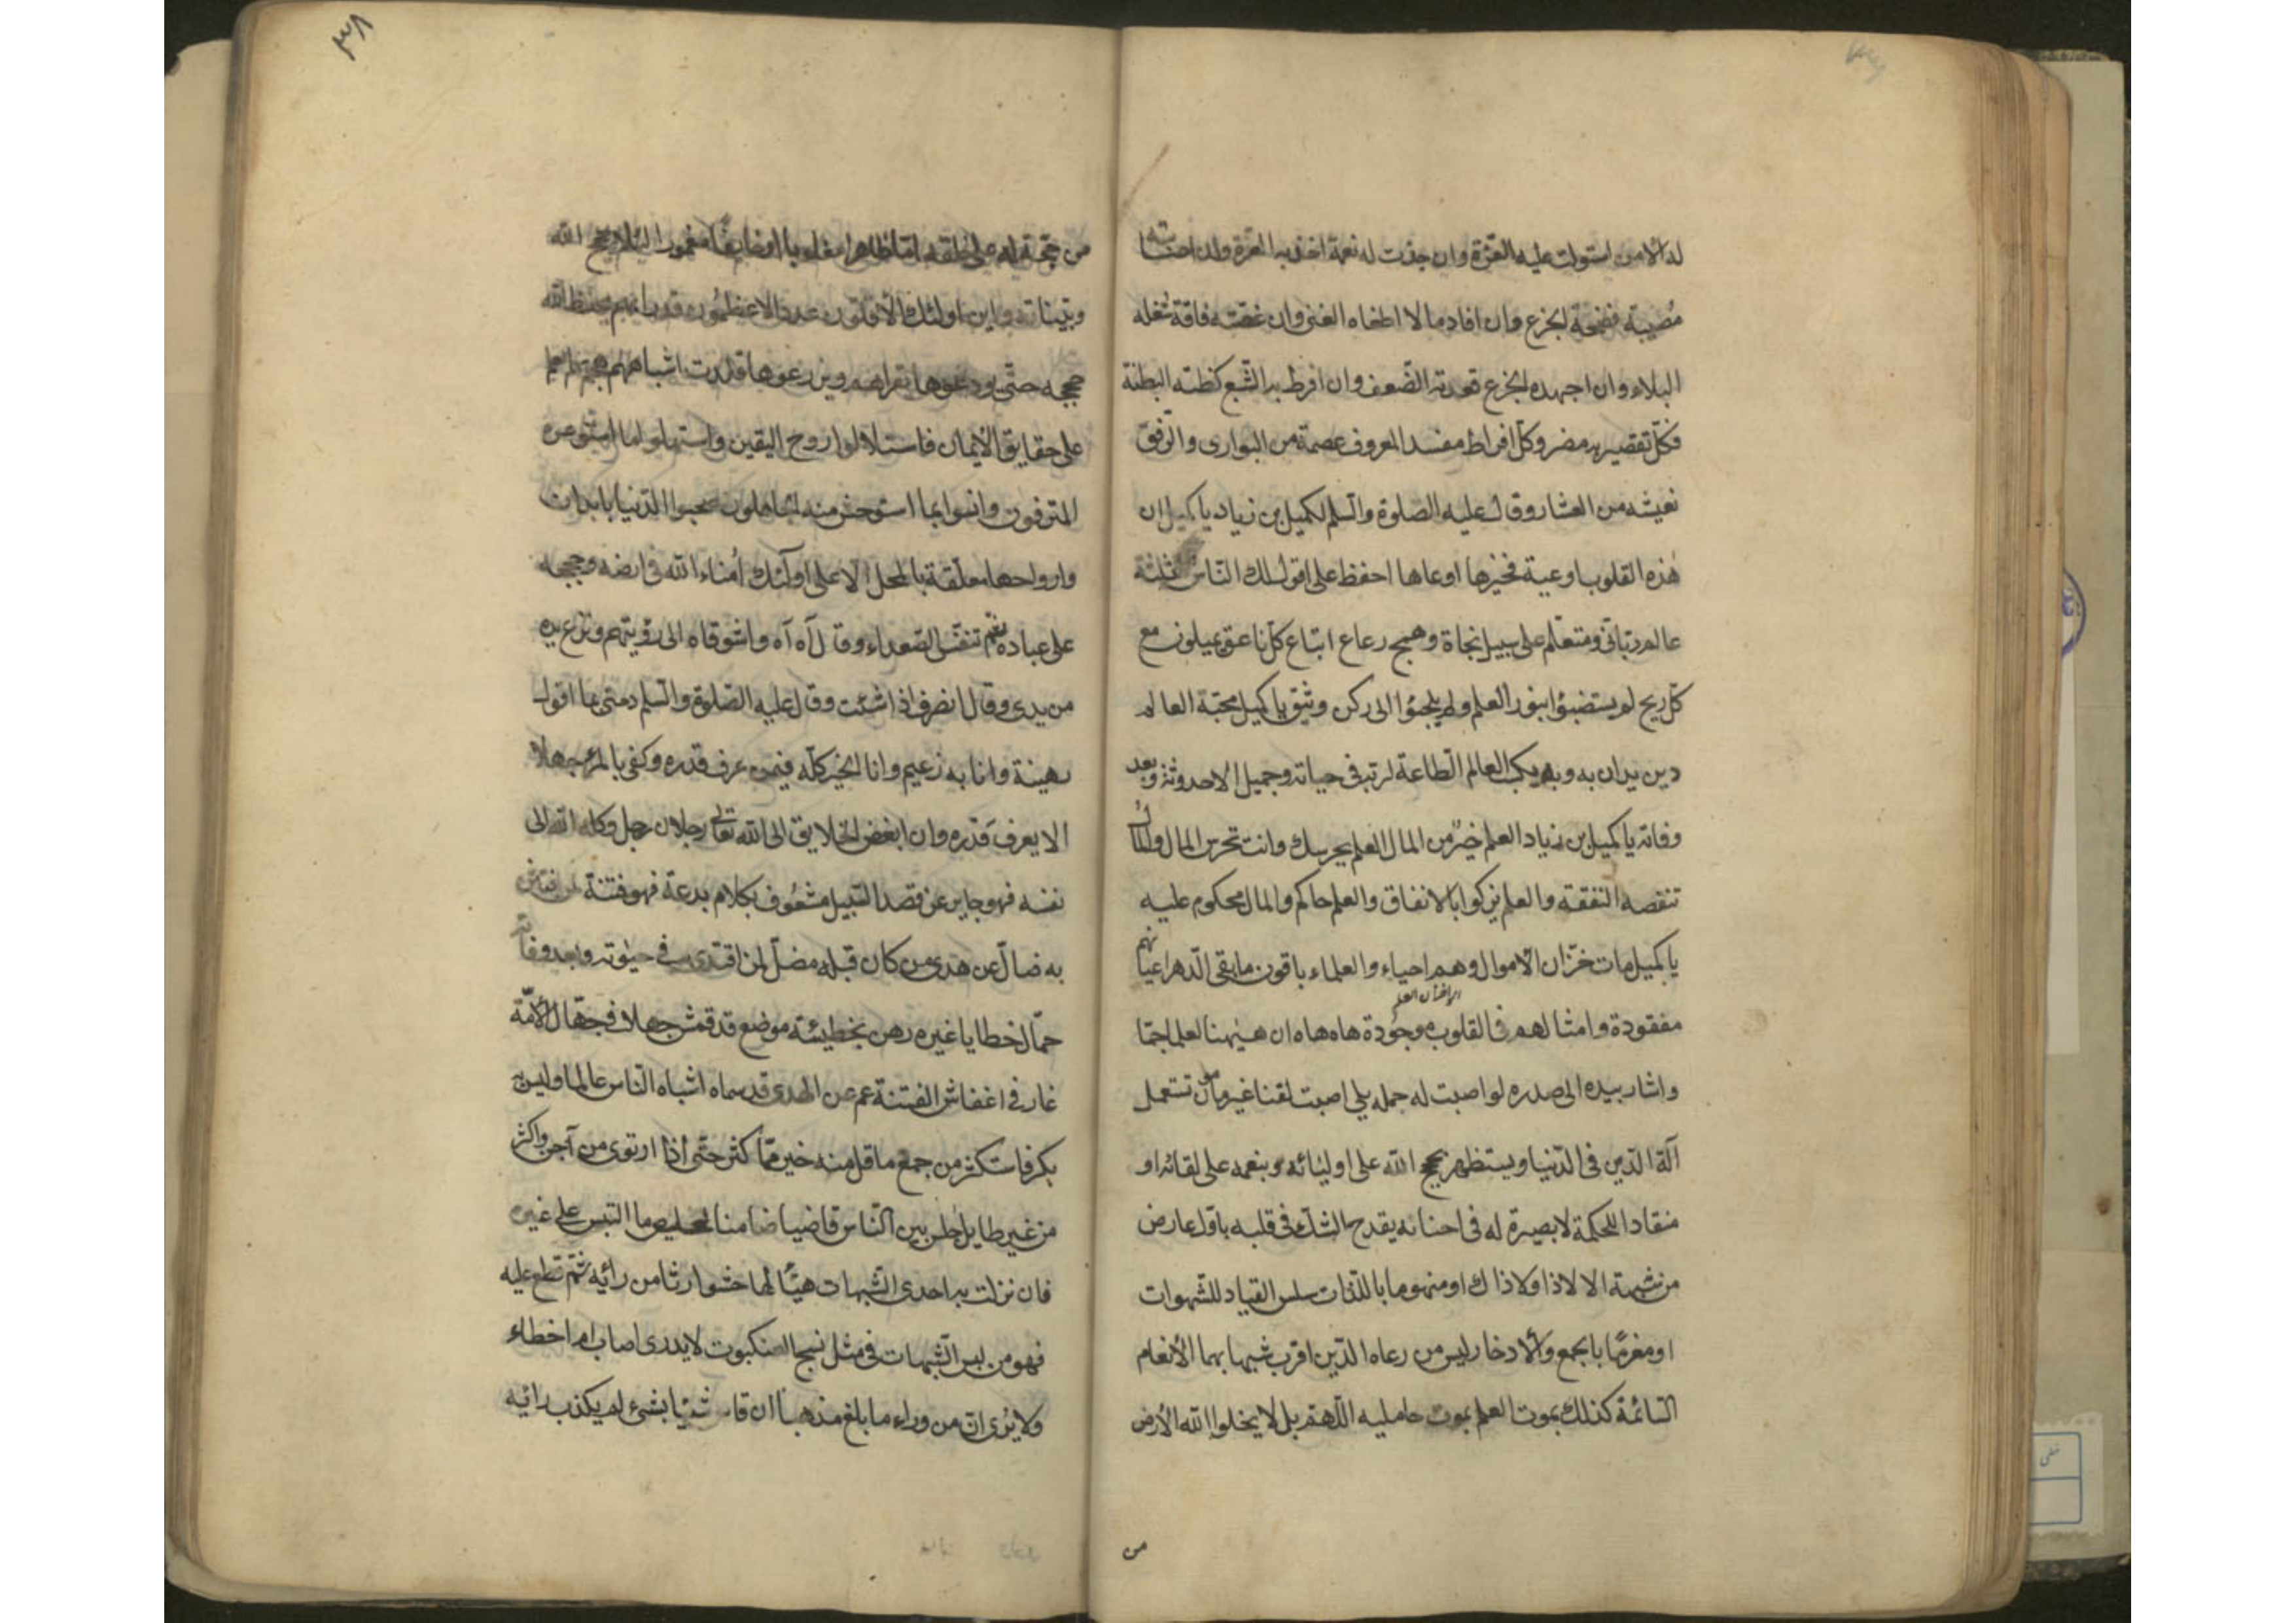 له الامن استولت عليه الغرة وان جذت له نعمة اخذته العزة وان اصابته
مُصيبة فضحة الجزع وان افاد مالا اطغاه الغنى وان عضته فاقة شغله
البلاء وان اجهده الجزع قعد به الضّعف وان افرط به الشّبع كظته البطنة
فكلّ تقصير به مضر وكل افراط مفسد المعروف عصمة من البوارى والرّفق
نعيشه من العشار وقال عليه الصلوة والسلم لكميل بن زياد يا كميل ان
هذه القلوب اوعية فخيرها اوعاها احفظ على اقول لك النّاس ثلثة
عالم ربّانى ومتعلّم على سبيل نجاة وهمج رعاع اتباع كلّ ناعق يميلون مع
كلّ ريح لم يستضيؤا بنور العلم ولم يلجئوا الى ركن وثيق يا كميل محبّة العالم
دين يدان به وبه يكسب العالم الطاعة لربه فى حياته وجميل الاحدوثة وبعد
وفاته يا كميل بن زياد العلم خير من المال العلم يحرسك وانت تحرس المال والمال
تنقصه النفقة والعلم يزكوا بالانفاق والعلم حاكم والمال محكوم عليه
يا كميل مات خزّان الاموال وهم احياء والعلماء باقون ما بقى الدّهر اعيانهم
مفقودة وامثالهم فى القلوب موجودة هاه هاه ان هيهنا لعلما جمّا
واشار بيده الى صدره لو اصبت له حمله بلى اصبت لقنا غير مأمون تستعمل
آلة الدّين فى الدّنيا ويستظهر بحجج الله على اوليائه وبنعمه على لقائه او
منقادا للحكمة لا بصيرة له فى احنائه يقدح الشك فى قلبه باوّل عارض
من شبهة الا لا ذا ولا ذاك او منهوما باللّذات سلس القياد للشّهوات
او مغرمًا بالجمع والادخار ليس من رعاه الدّين اقرب شبها بهما الأنعام
السّائمة كذلك يموت العلم بموت حامليه اللّهمّ بل لا يخلوا الله الأرض
من
٣٨
من حجّة له على خلقه امّا ظاهرا مغلوبا او خايفًا مغمورا لئلا حجج الله
وبيّناته واين اولئك الأقلّون عددا الاعظمُون قدرا بهم يحفظ الله
حججه حتّى يودعوها نظراءهم ويزرعوها قلوب اشباههم هجم بهم العلم
على حقايق الأيمان فاستلانوا روح اليقين واستسهلوا ما استوعره
المترفون وانسوا بما استوحش منه الجاهلون صحبوا الدّنيا بابدان
وارواحها معلّقة بالمحل الاعلى اولئك اُمناء الله فى ارضه وحججه
على عباده ثمّ تنفّس الصّعداء وقال آه آه واشوقاه الى رؤيتهم ونزع يده
من يدى وقال انصرف اذا شئت وقال عليه الصّلوة والسلم ذمتى بما اقول
رهينة وانا به زعيم وانا الخير كلّه فيمن عرف قدره وكفى بالمرء جهلا
الا يعرف قدره وان ابغض الخلايق الى الله تعالى رجلان رجل وكله الله الى
نفسه فهو جاير عن قصد السّبيل مشعُوف بكلام بدعة فهو فتنة لمن افتتن
به ضالّ عن هدى من كان قبله مضلّ لمن اقتدى به فى حيوته وبعد وفاته
حمّال خطايا غيره رهن بخطيئته موضع قد قمش جهلا فى جهّال الأمّة
غار فى اغفاش الفتنة عم عن الهدى قد سماه اشباه النّاس عالما وليس به
بكر فاستكثر من جمع ما قلّ منه خير ممّا كثر حتّى اذا ارتوى من آجن واكثر
من غير طايل جلس بين النّاس قاضيا ضامنا لتخليص ما التبس على غيره
فان نزلت به احدى الشّبهات هيّأ لها حشوا رثا من رأيه ثمّ قطع عليه
فهو من لبس الشّبهات فى مثل نسج العنكبوت لا يدرى اصاب ام اخطاء
ولا يرى انّ من وراء ما بلغ مذهبا ان قاس شيئا بشئ لم يكذب رائيه